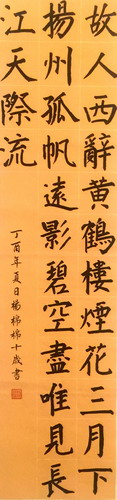 故人西辭黄鶴樓煙花三月下
揚州孤帆遠影碧空盡唯見長
江天際流
丁酉年夏日楊十歲書